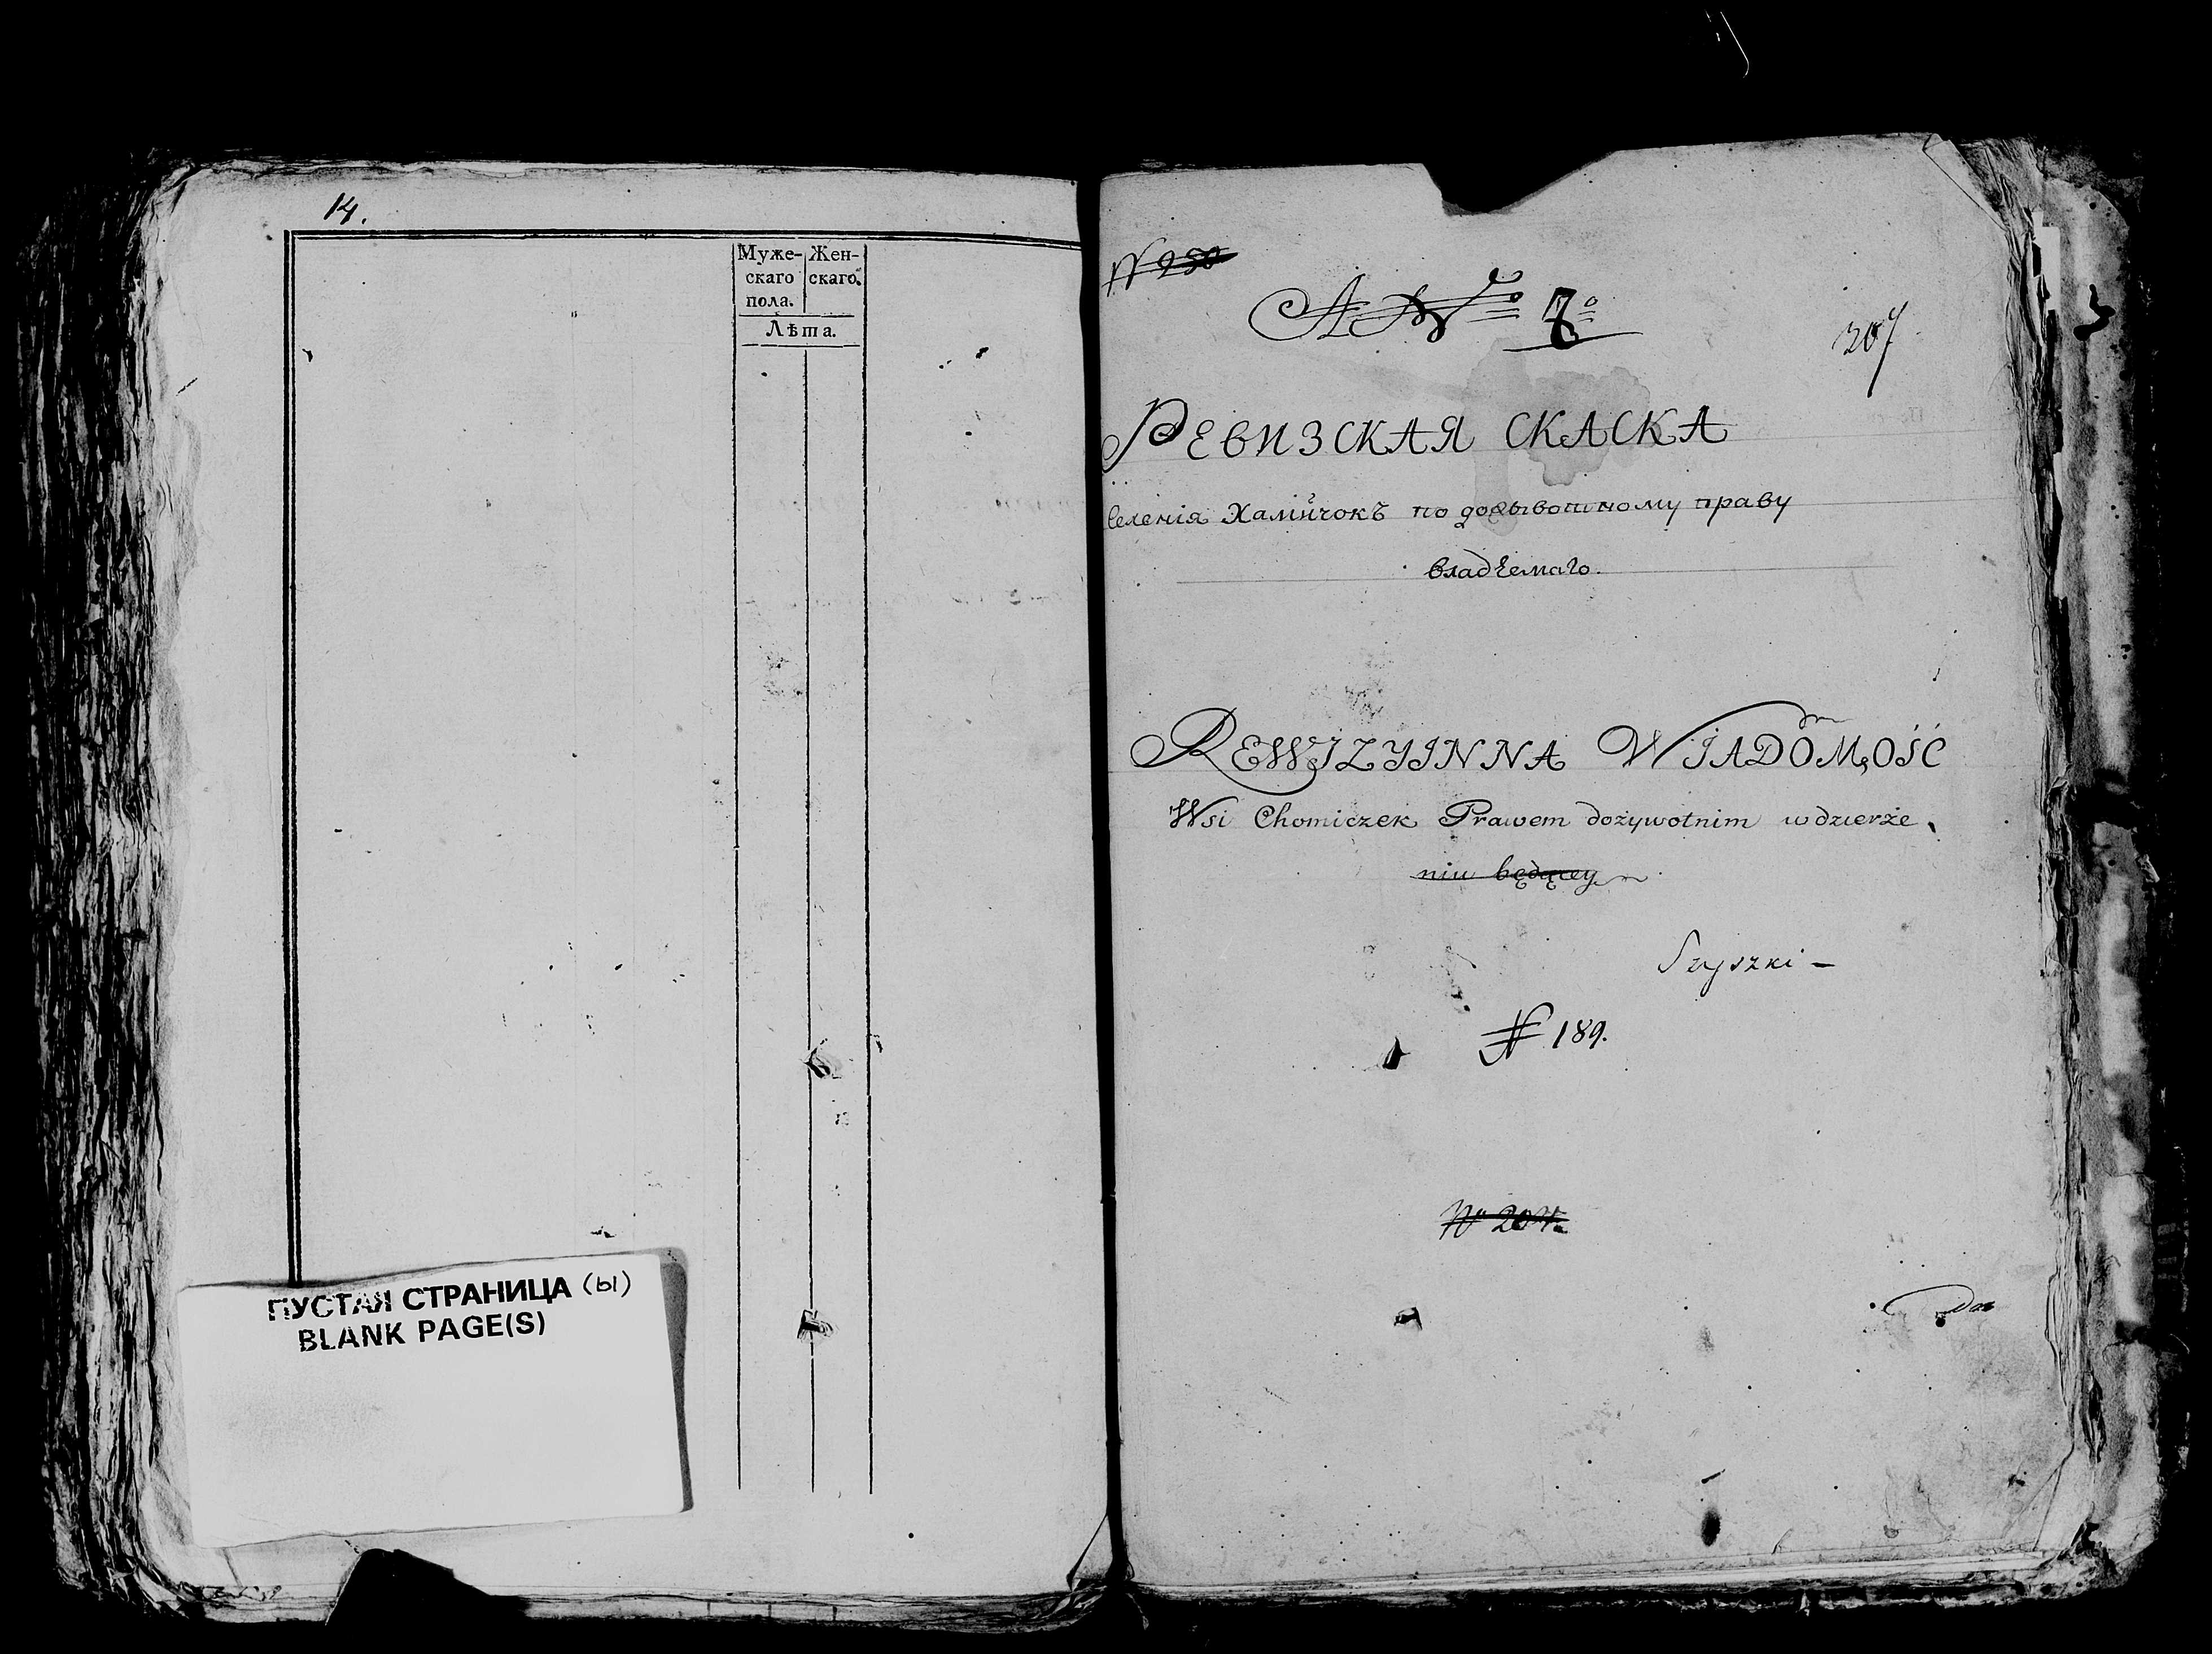 14.
Муже- Жен-
скаго скаго.
пола.
Лѣта.
ПУСТАЯ СТРАНИЦА (ы)
BLANK PAGE(S)
№ 250
№ 7º
207
РЕВИЗСКАЯ СКАСКА
Селенія Хамичокъ по дожывотному праву
владѣемаго.
REWIZYINNA WIADOMOŚĆ
Wsi Chomiczek Prawem dożywotnim w dzierże
niu będącey
№ 189.
№ 204.